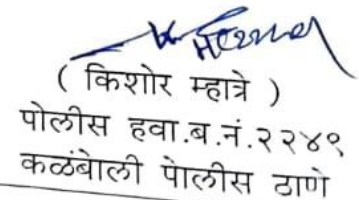 ( किशोर म्हात्रे )
पोलीस हवा.ब.नं.२२४९
कळंबोली पोलीस ठाणे